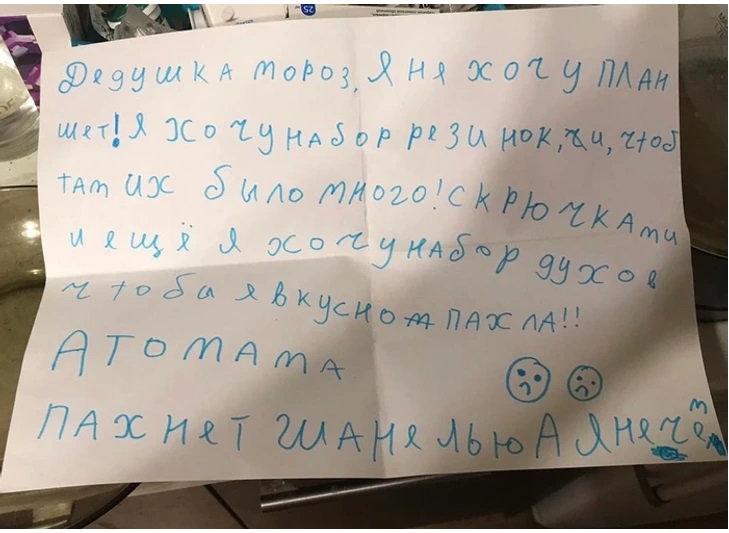 Дедушка мороз, я не хочу план
шет! я хочу набор резинок, и, чтоб
там их было много! с крючками
и ещё я хочу набор духов
чтобы я вкусном пахла!!
А то мама
пахнет шанелью А я нечем